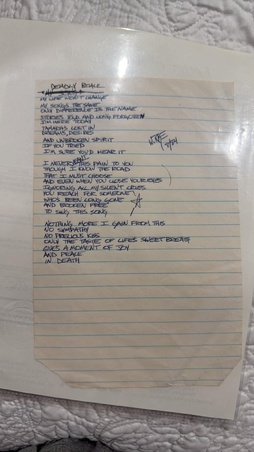 DEADLY RULE
MY LIFE WON'T CHANGE
MY SONGS THE SAME
ONLY DIFFERENCE IS THE NAME
STORIES TOLD AND LONG FORGOTTEN
I'M HERE TODAY
LOST IN
DREAMS, DESIRES
AND UNBROKEN SPIRIT
IF YOU TRIED
I'M SURE YOU'D HEAR IT
I NEVER THIS PAIN TO YOU
THOUGH I KNOW THE ROAD
THAT I MUST CHOOSE
AND EVEN WHEN YOU CLOSE YOUR EYES
IGNORING ALL MY SILENT CRIES
YOU REACH FOR SOMEONE
WHO'S BEEN LONG GONE
AND BROKEN FREE
TO SING THIS SONG
NOTHING MORE I GAIN FROM THIS
NO SYMPATHY
NO PRECIOUS KISS
ONLY THE TASTE OF LIFE'S SWEET BREATH
GIVES A MOMENT OF JOY
AND PEACE
IN DEATH